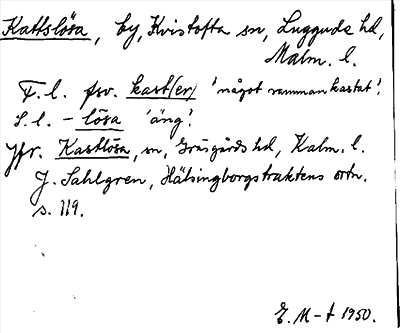 Kattslösa, by, Kvistofta sn, Luggude hd,
Malm. l.
F. l. fsv. kast(er) 'något sammankastat'.
S. l. - lösa 'äng'.
Jfr. Kastlösa, sn, Gräsgårds hd, Kalm. l.
J. Sahlgren, Hälsingborgstraktens ortn.
s. 119.
E. M-t 1950.